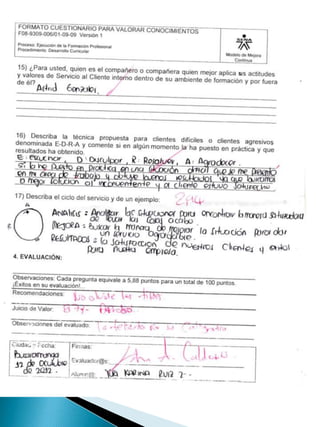 FORMATO CUESTIONARIO PARA VALORAR CONOCIMIENTOS
F08-9309-006/01-09-09 Versión 1
Proceso: Ejecución de la Formación Profesional
Procedimiento: Desarrollo Curricular
SENA
Modelo de Mejora
Continua
15) ¿Para usted, quien es el compañero o compañera quien mejor aplica us actitudes
y valores de Servicio al Cliente interno dentro de su ambiente de formación y por fuera
de él?
Astrid Gonzalez.
16) Describa la técnica propuesta para clientes difíciles o clientes agresivos
denominada E-D-R-A y comente si en algún momento la ha puesto en práctica y que
resultados ha obtenido.
E: escuchar, D: Disculpar, R: Resolver, A: Agradecer.
si lo he puesto en practica en una situación dificil que se me presento
en mi area de trabajo y obtuve buenos resultados ya que buscamos
la mejor solucion al inconveniente y el cliente estuvo satisfecho
17) Describa el ciclo del servicio y de un ejemplo:
A
R
Analisis: Analizar las situaciones para encontrar la manera
de las cosas
Mejora: buscar la manera de mejorar la situación para dar
un servicio agradable.
Resultados: la satisfaccion de nuestros clientes y
para nuestra empresa.
4. EVALUACIÓN:
Observaciones: Cada pregunta equivale a 5,88 puntos para un total de 100 puntos.
¡Éxitos en su evaluación!
Recomendaciones:
Juicio de Valor:
Observaciones del evaluado:
Ciudad y Fecha:
Firmas:
Bucaramanga
de Octubre
de 2012.
Evaluador@s:
Alumn@:
Karina Ruiz